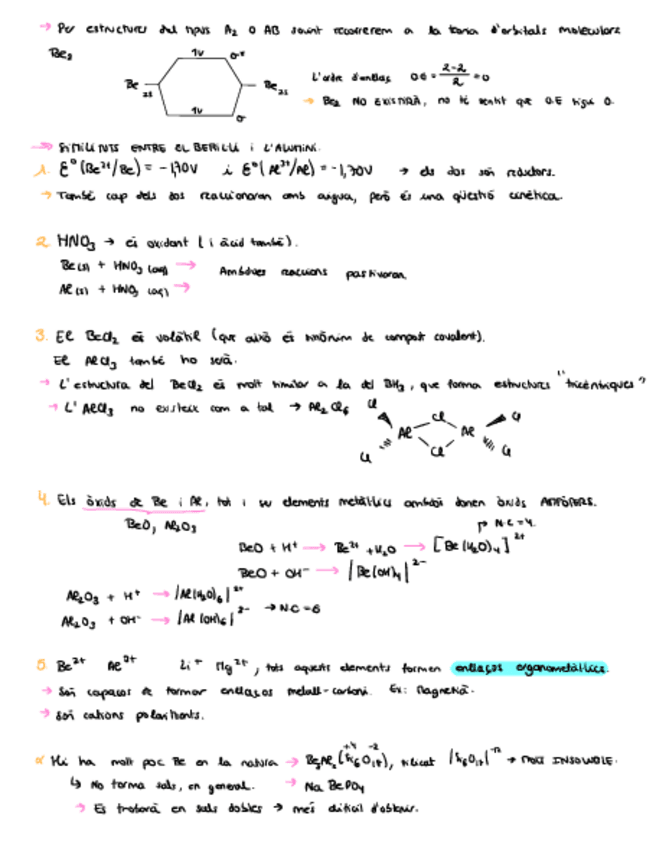 → Per estructures del tipus A₂ o AB sovint recorrerem a la teoria d'orbitals moleculars
Be₂
1ν σ*
Be 2s Be 2s
1ν σ
L'ordre d'enllaç OE = (2-2)/2 = 0
→ Be₂ NO EXISTIRÀ, no té sentit que O.E sigui 0.
→ SIMILITUTS ENTRE EL BERIL·LI i L'ALUMINI.
1. E°(Be²⁺/Be) = -1,70V i E°(Al³⁺/Al) = -1,70V → els dos són reductors.
→ També cap dels dos reaccionaran amb aigua, però és una qüestió cinètica.
2. HNO₃ → és oxidant (i àcid també).
Be(s) + HNO₃(aq) →
Al(s) + HNO₃(aq) →
Ambdues reaccions passivaran
3. El BeCl₂ és volàtil (que això és sinònim de compost covalent).
El AlCl₃ també ho serà.
→ L'estructura del BeCl₂ és molt similar a la del BH₃, que forma estructures "tricèntriques"
→ L'AlCl₃ no existeix com a tal → Al₂Cl₆
Cl Cl Cl
Al Al
Cl Cl Cl
4. Els òxids de Be i Al, tot i ser elements metàl·lics ambdós donen òxids AMFÒTERS.
BeO, Al₂O₃
→ N·C = 4.
BeO + H⁺ → Be²⁺ + H₂O → [Be(H₂O)₄]²⁺
BeO + OH⁻ → |Be(OH)₄|²⁻
Al₂O₃ + H⁺ → |Al(H₂O)₆|³⁺
Al₂O₃ + OH⁻ → |Al(OH)₆|³⁻ → N·C = 6
5. Be²⁺ Al³⁺ Li⁺ Mg²⁺, tots aquests elements formen enllaços organometàl·lics.
→ Són capaços de formar enllaços metall-carboni. Ex: Magnesià.
→ Són cations polaritzants.
Hi ha molt poc Be en la natura → Be₃Al₂(Si₆O₁₈), silicat |Si₆O₁₈|⁻¹² → molt INSOLUBLE.
+4 -2
↳ No forma sals, en general. → Na BePO₄
→ Es trobarà en sals dobles → més difícil d'obtenir.